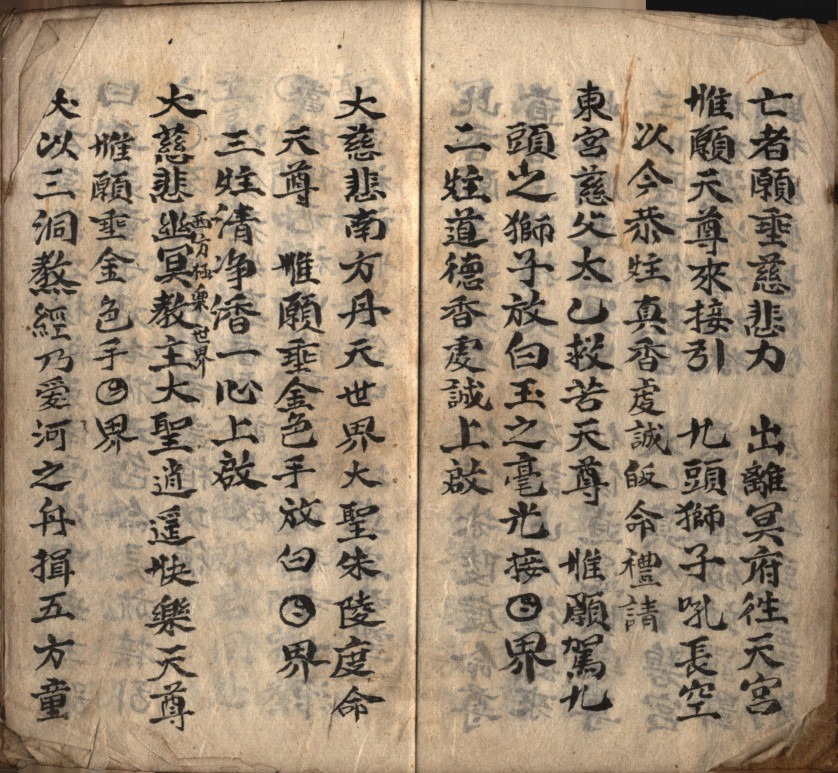 亡者願垂慈悲力 出離冥府徃天宮
惟願天尊來接引 九頭獅子吼長空
以今恭炷真香虔誠皈命禮請
東宮慈父太乙救苦天尊 惟願駕九
頭之獅子放白玉之毫光接㇣界
二炷道德香虔誠上啟
大慈悲南方丹天世界大聖朱陵度命
天尊 惟願垂金色手放白㇣界
三炷清净香一心上啟
大慈悲幽冥教主大聖逍遥快樂天尊
西方極樂世界
惟願垂金色手㇣界
夫以三洞教經乃愛河之舟揖五方童